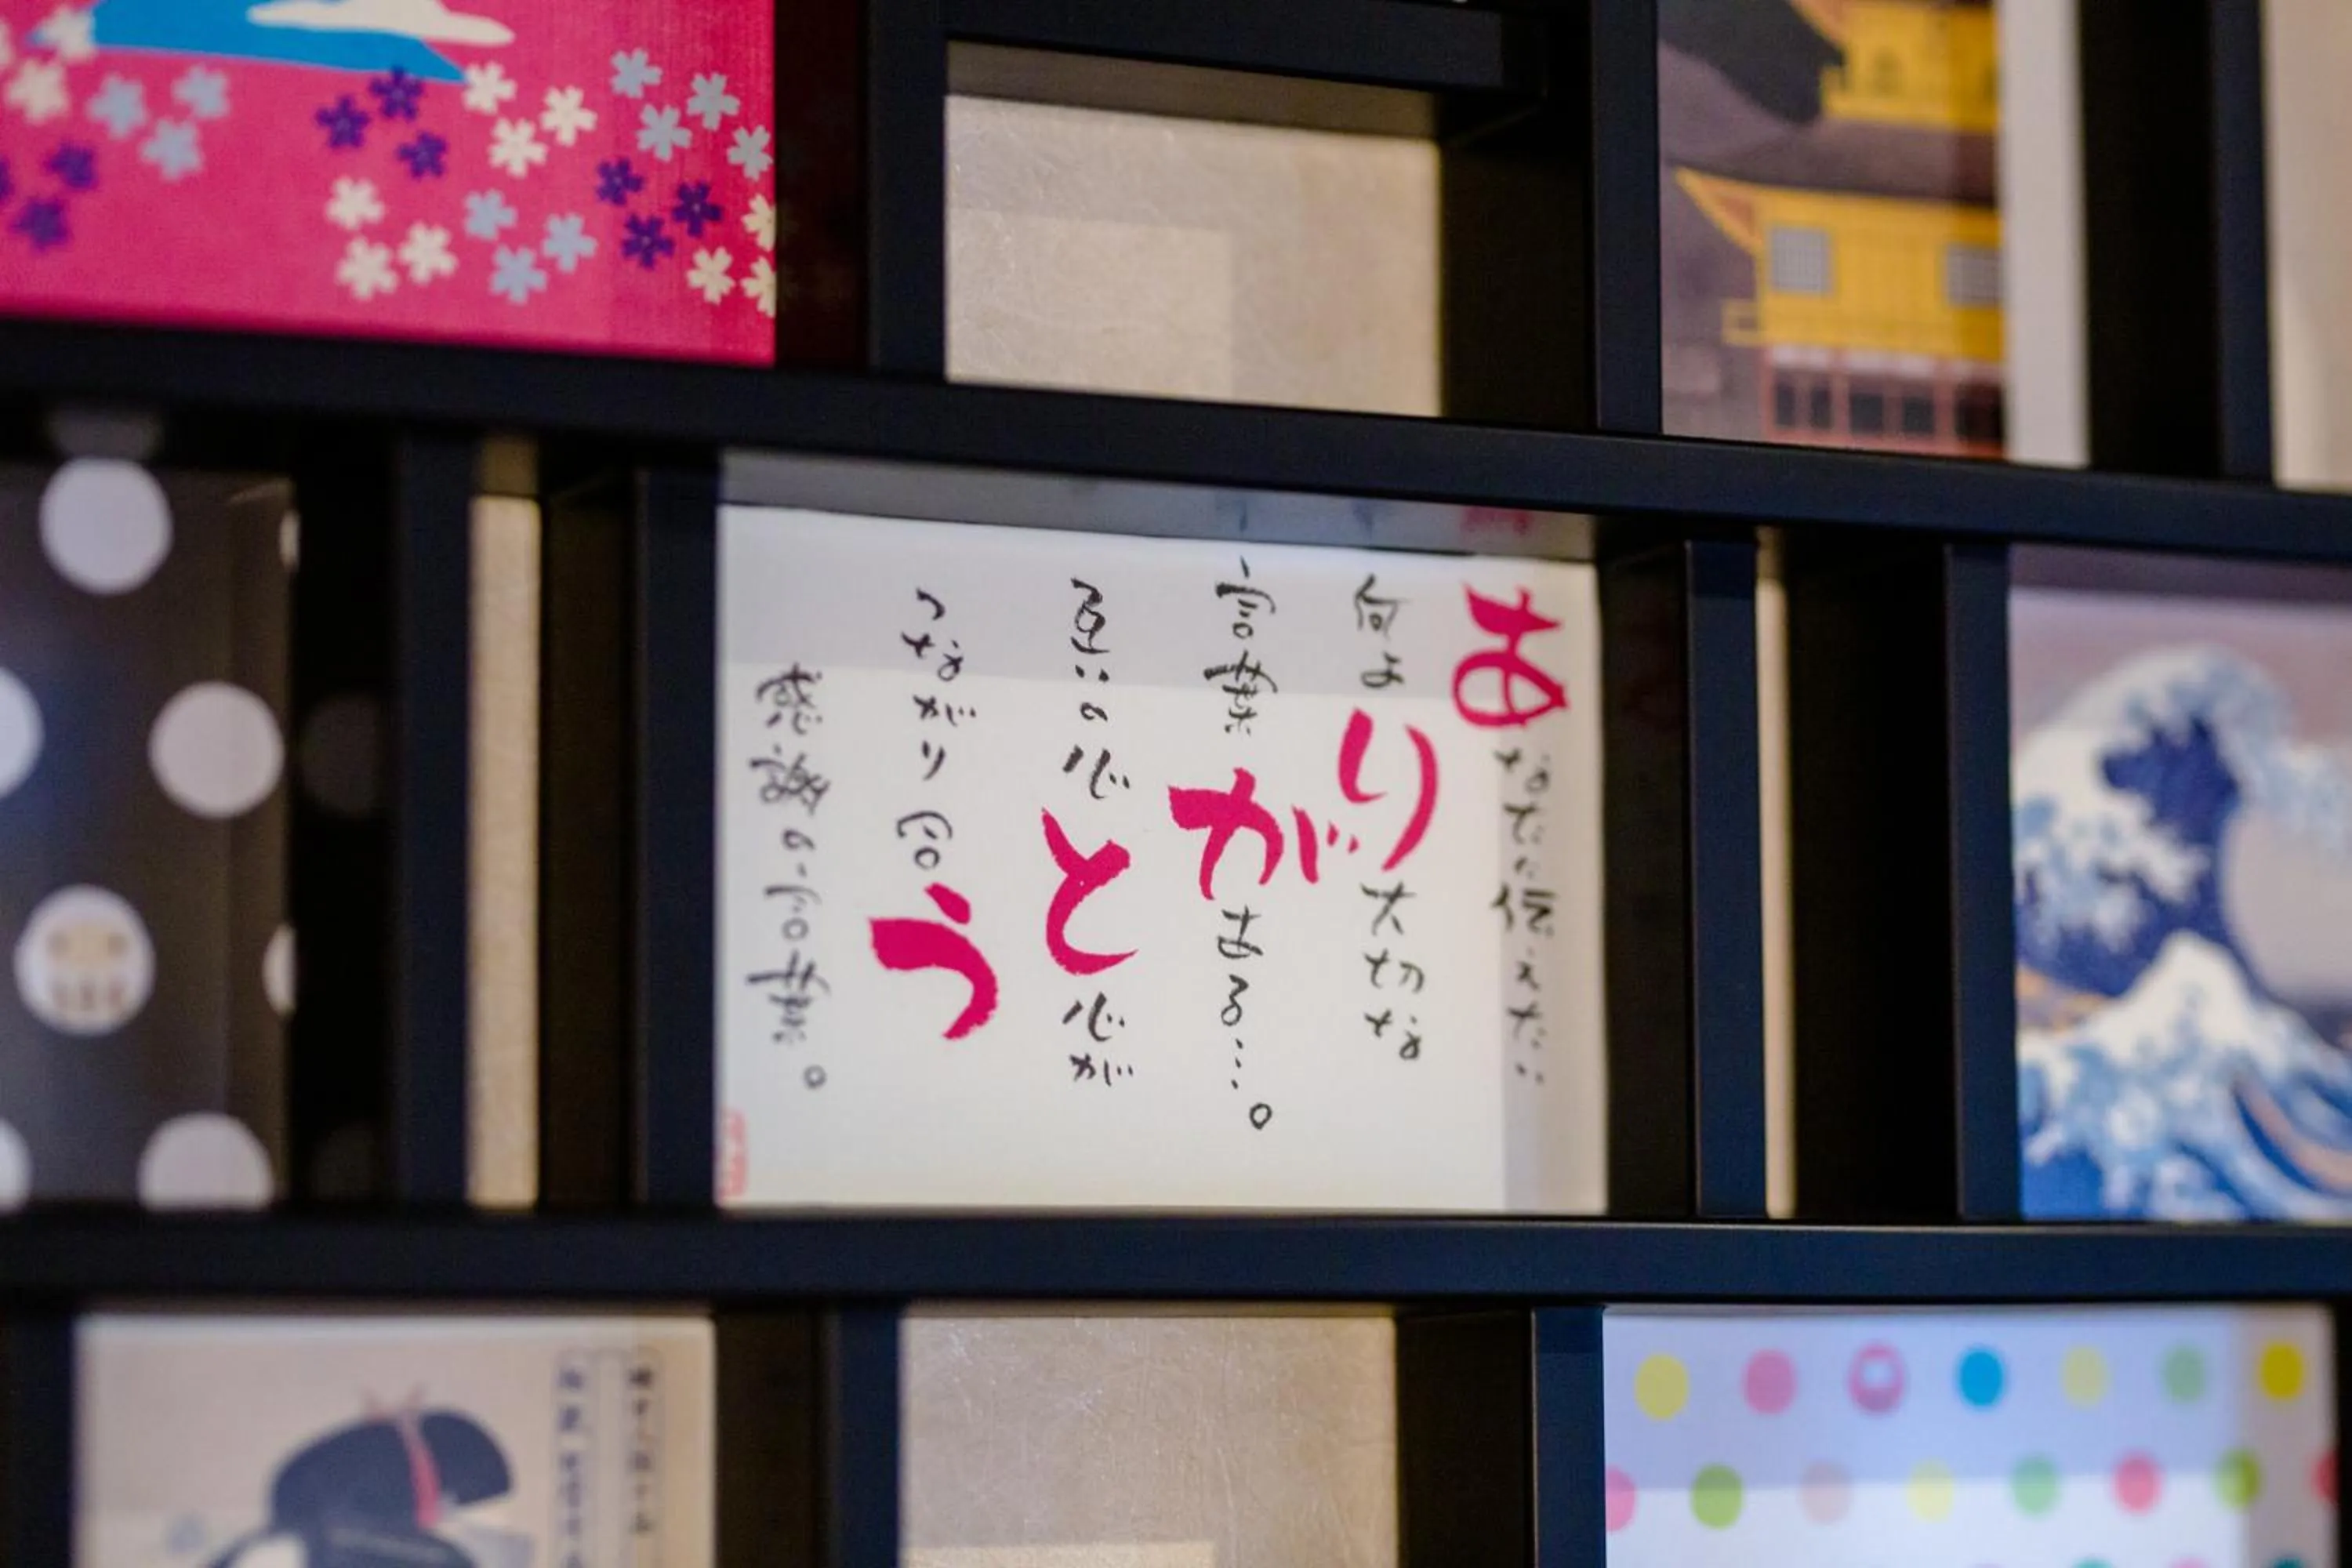 あなたに伝えたい
何より大切な
言葉がある…。
互いの心と心が
つながり合う
感謝の言葉。